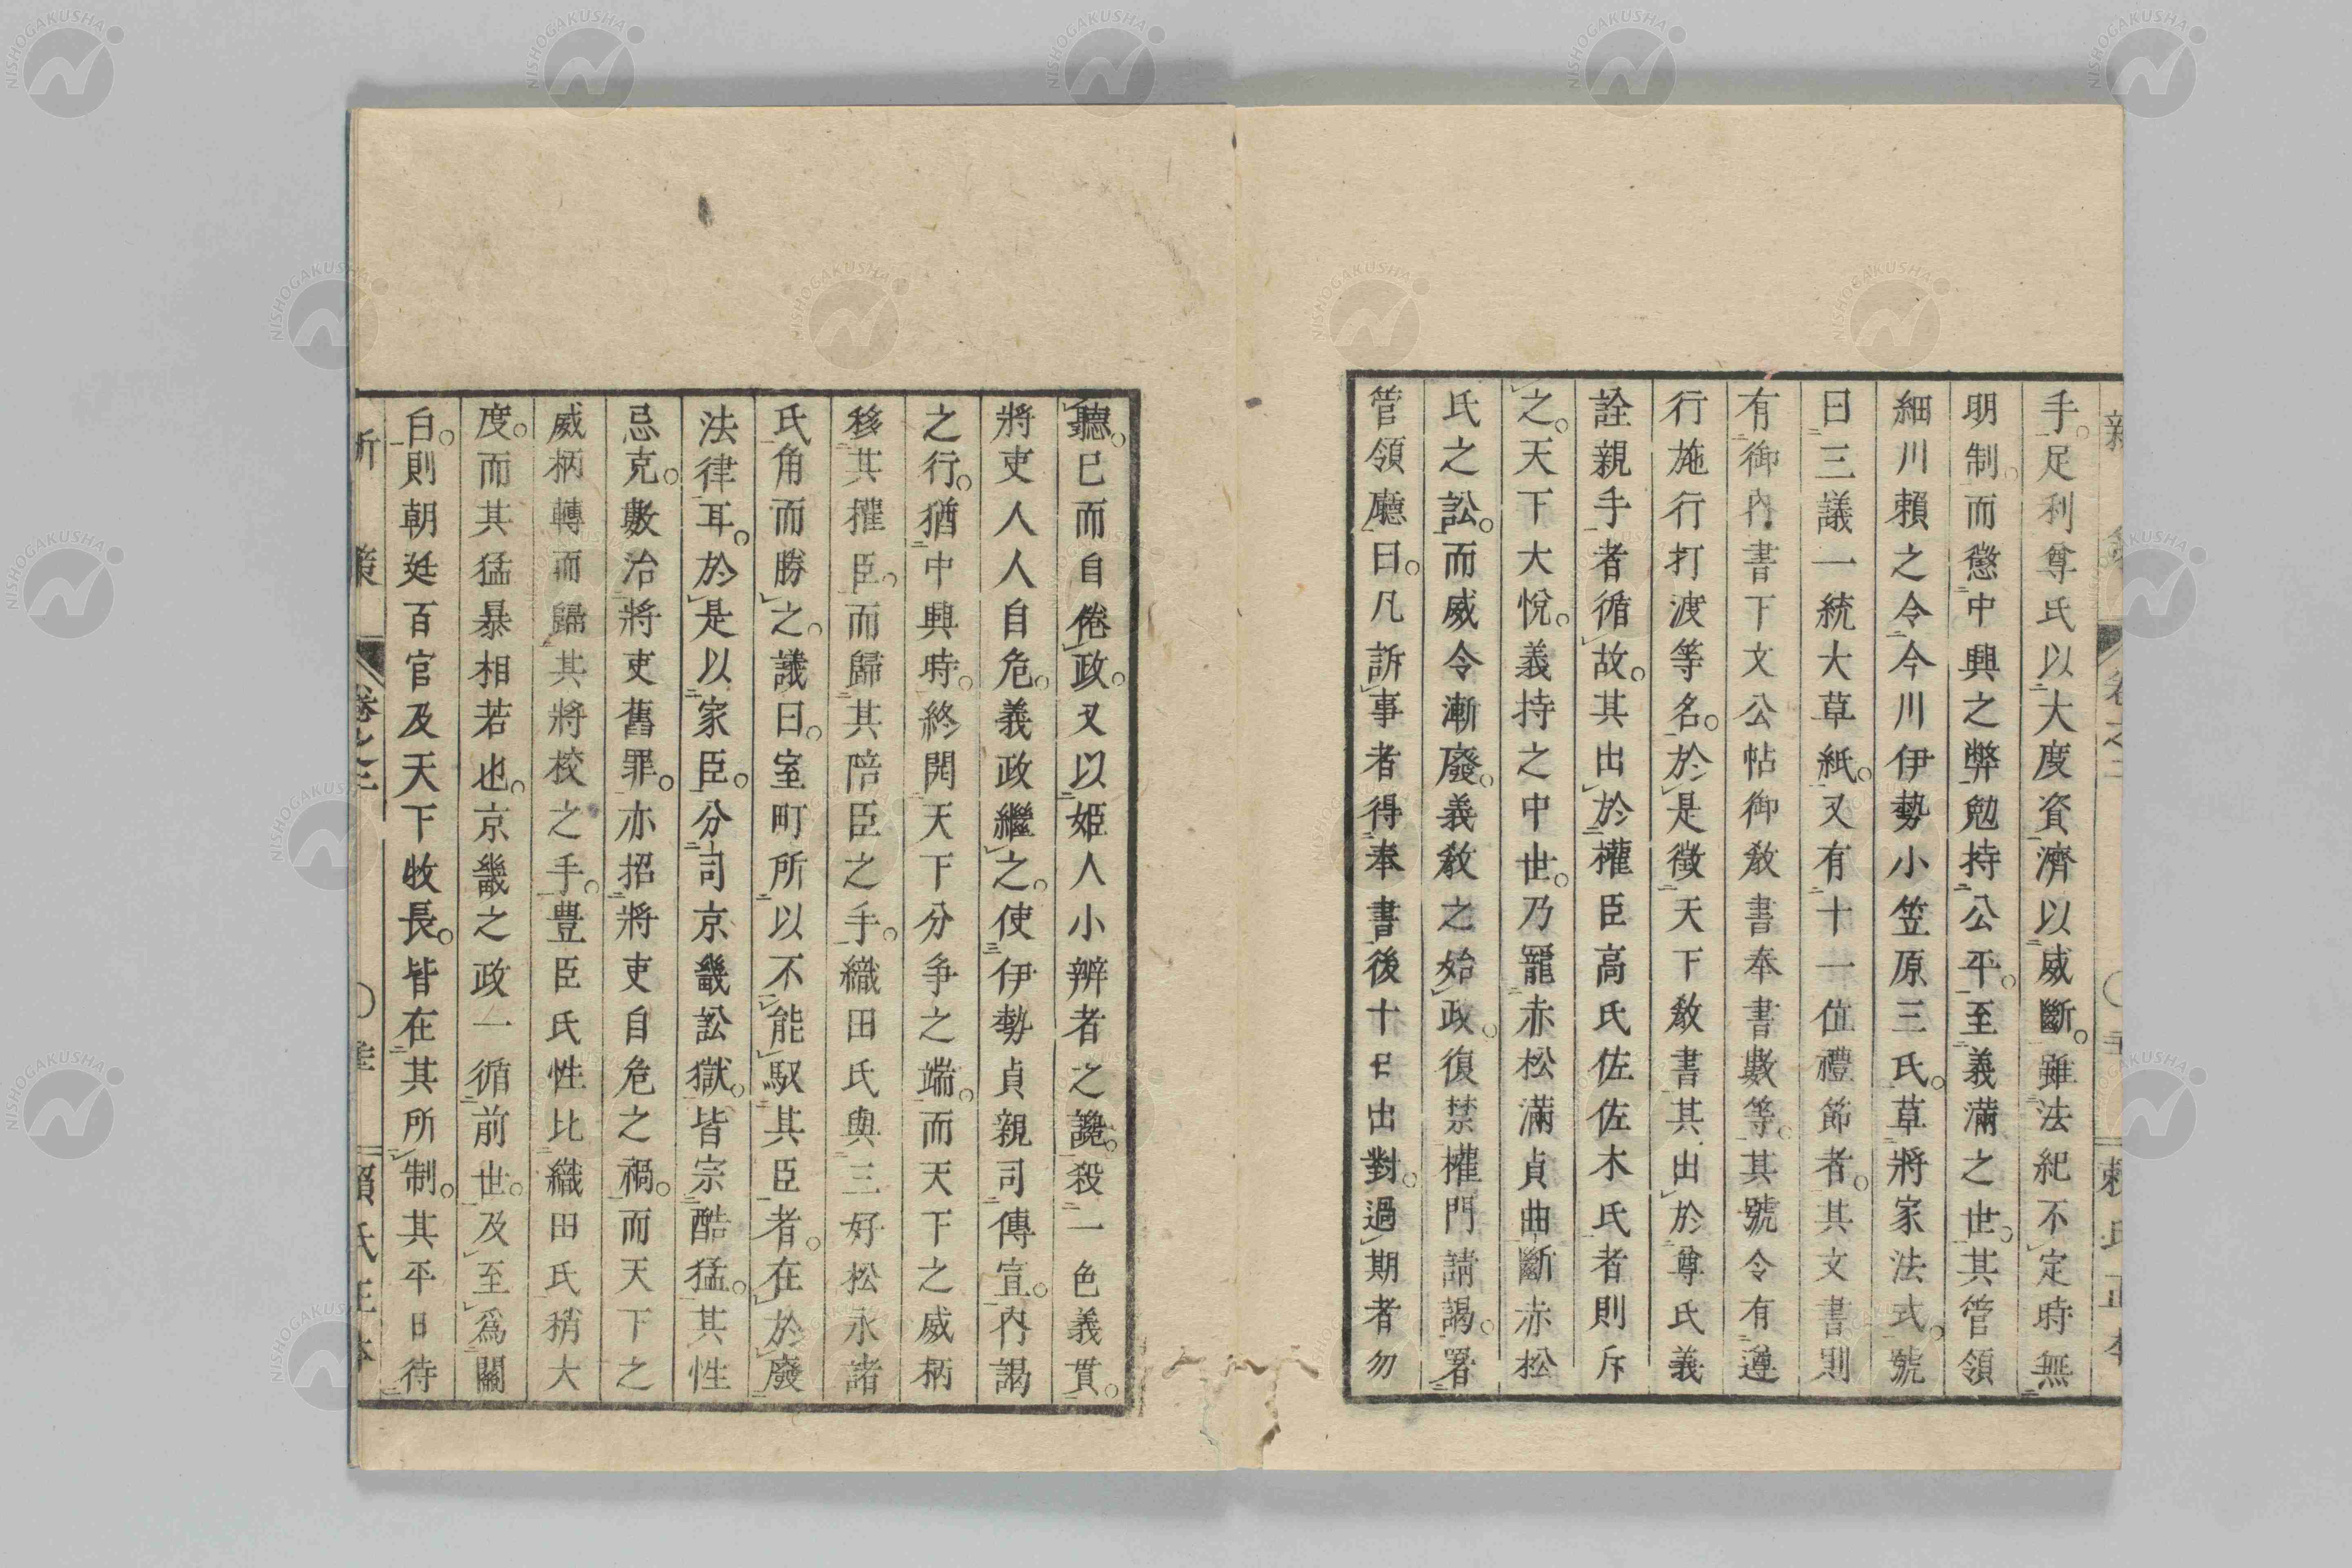 手。足利尊氏以大度資濟以威斷。雖法紀不定時無
明制。而懲中興之弊勉持公平。至義滿之世。其管領
細川賴之令今川伊勢小笠原三氏。草將家法式。號
曰三議一統大草紙。又有十一位禮節者。其文書則
有御內書下文公帖御敎書奉書數等。其號令有遵
行施行打渡等名。於是徵天下敎書其出於尊氏義
詮親手者循故。其出於權臣高氏佐佐木氏者則斥
之。天下大悅。義持之中世。乃寵赤松滿貞曲斷赤松
氏之訟。而威令漸廢。義敎之始政。復禁權門請謁。署
管領廳曰。凡訴事者得奉書後十日出對。過期者勿
聽。已而自倦政。又以姫人小辨者之讒。殺一色義貫。
將吏人人自危。義政繼之。使伊勢貞親司傳宣。內謁
之行。猶中興時。終開天下分爭之端。而天下之威柄
移其權臣。而歸其陪臣之手。織田氏與三好松永諸
氏角而勝之。議曰。室町所以不能馭其臣者。在於廢
法律耳。於是以家臣。分司京畿訟獄。皆宗酷猛。其性
忌克。數治將吏舊罪。亦招將吏自危之禍。而天下之
威柄轉而歸其將校之手。豐臣氏性比織田氏稍大
度。而其猛暴相若也。京畿之政一循前世。及至爲關
白。則朝廷百官及天下收長。皆在其所制。其平日待
新 策 卷之三 賴氏正本